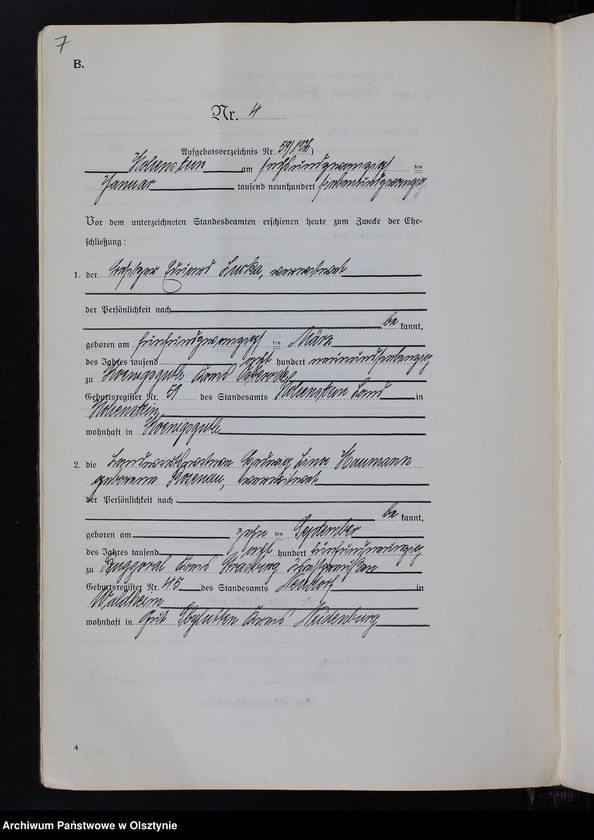 7
B.
Nr. 4
Aufgebotsverzeichnis Nr. 59/1926)
Hohenstein am sechsundzwanzigsten
Januar tausend neunhundert siebenundzwanzig
Vor dem unterzeichneten Standesbeamten erschienen heute zum Zwecke der Ehe=
schließung:
1. der Besitzer Eduard, verwitwet
der Persönlichkeit nach
be kannt,
geboren am fünfundzwanzigsten März
des Jahres tausend acht hundert neunundsiebenzig
zu Koenigsgut Kreis Osterode
Geburtsregister Nr. 51 des Standesamts Hohenstein Land in
Hohenstein,
wohnhaft in Koenigsgut
2. die Hedwig Naumann
geborene Rosenau, verwitwet
der Persönlichkeit nach
be kannt,
geboren am zehn ten September
des Jahres tausend acht hundert
zu Kreis Strasburg Westpreußen
Geburtsregister Nr. 45 des Standesamts in
Waldheim
wohnhaft in Gut Kreis Neidenburg
4
Archiwum Państwowe w Olsztynie